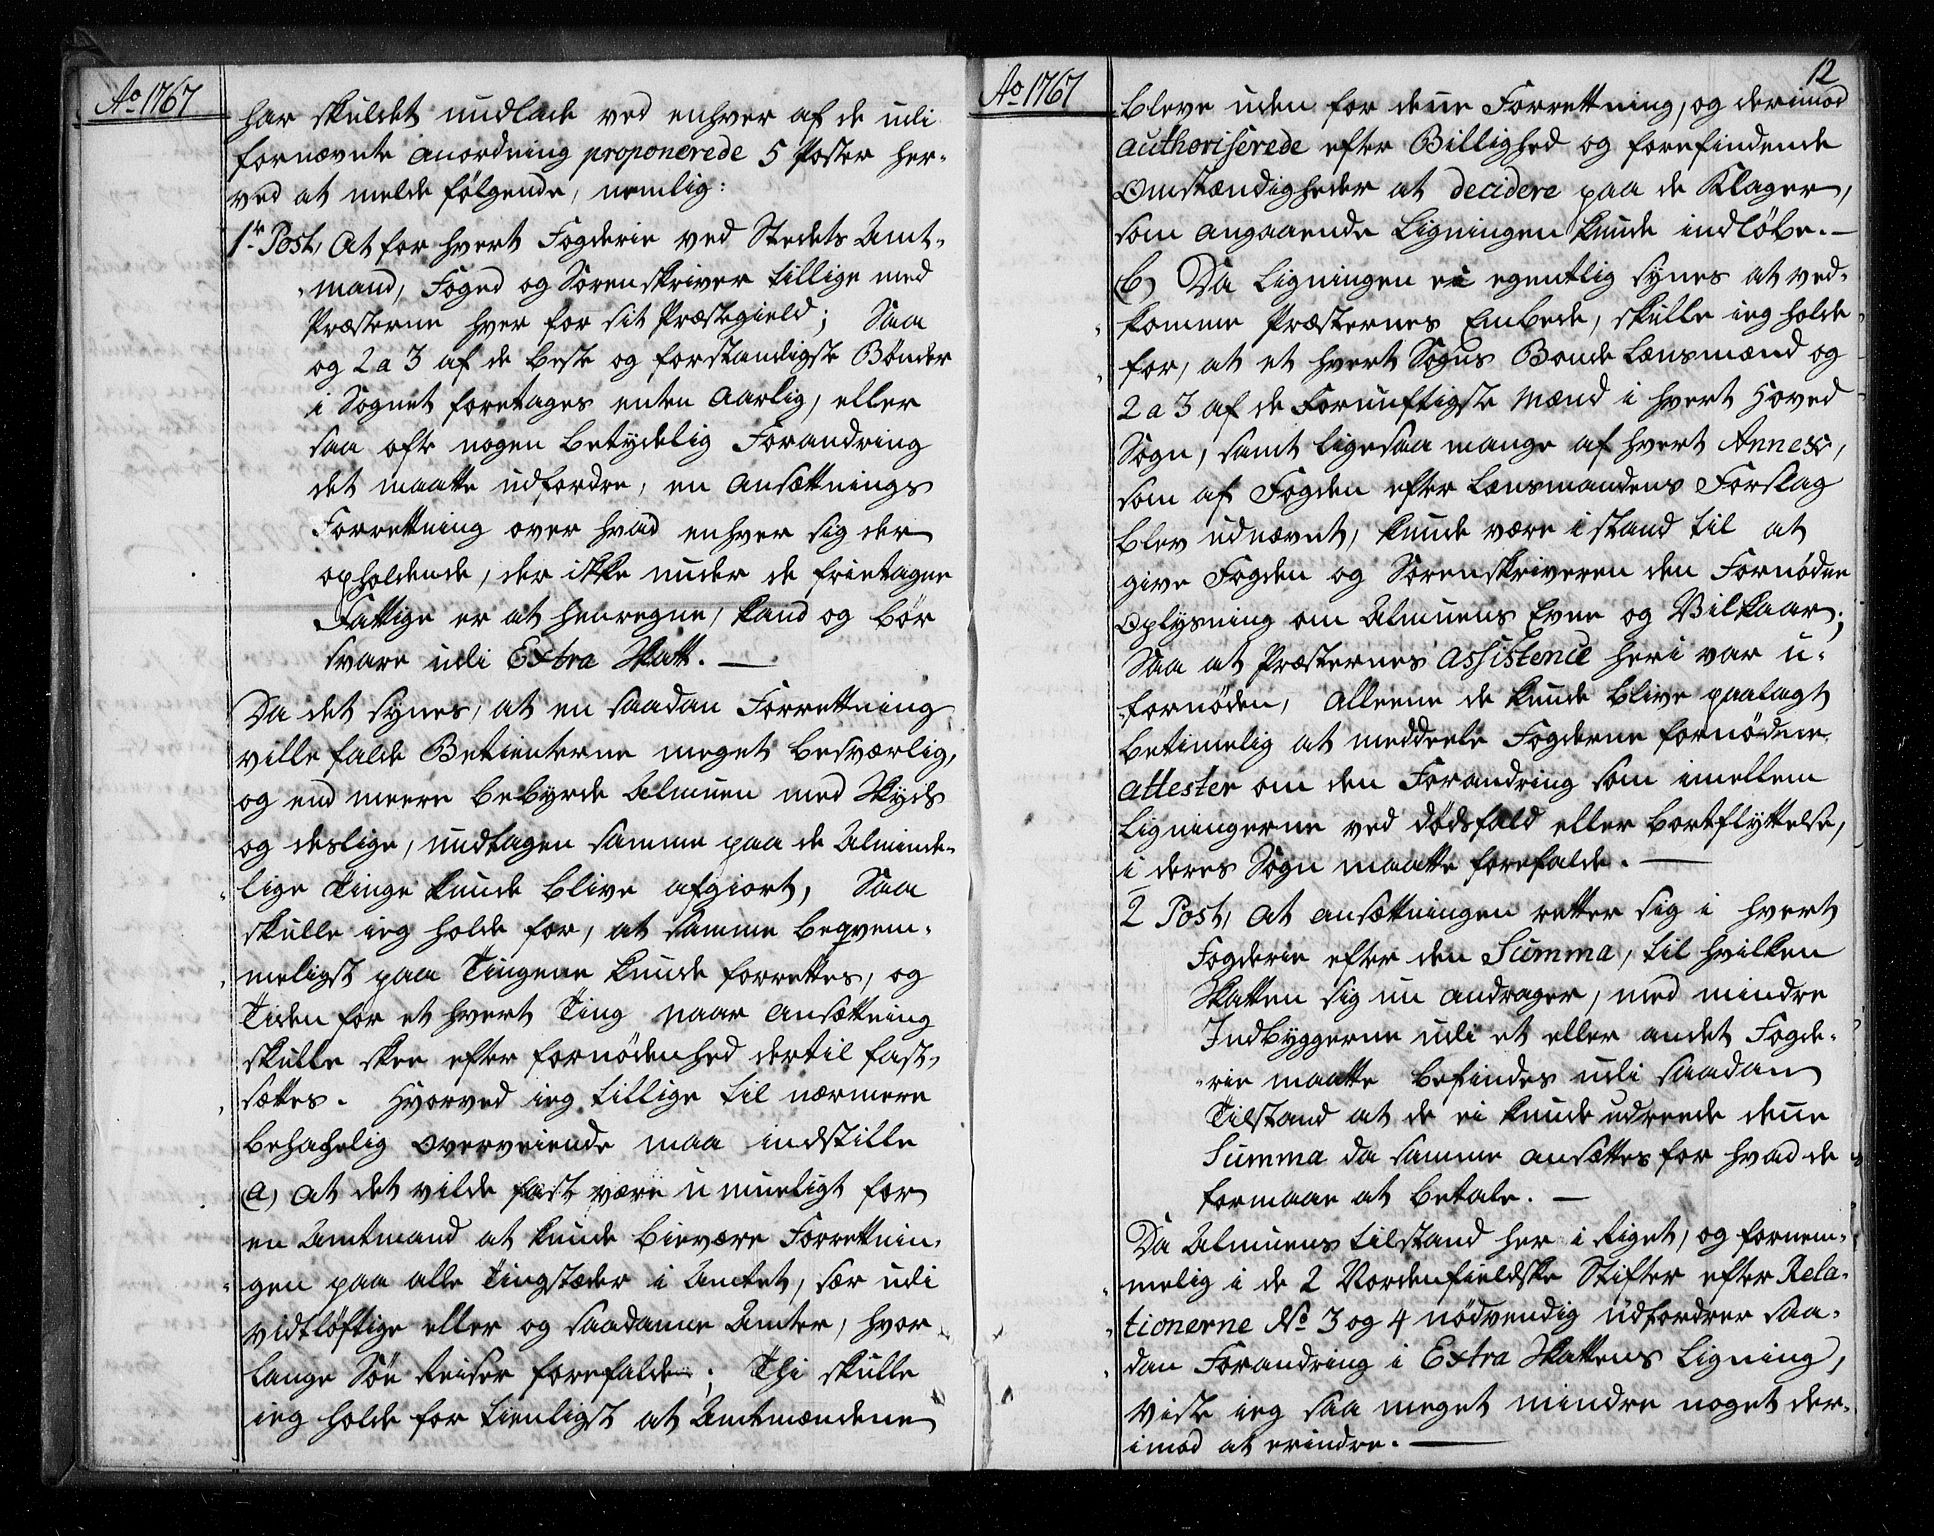 Ao 1767
har skuldet undlade ved enhver af de udi
fornævnte Anordning proponerede 5 Poster her-
ved at melde følgende, nemlig:
1te Post, At for hvert Fogderie ved Stedets Amt-
mand, Foged og Sorenskriver tillige med
Præsterne hver for sit Præstegield; Saa
og 2 a 3 af de beste og forstandigste Bønder
i Sognet foretages enten Aarlig, eller
saa ofte nogen betydelig Forandring
det maatte udfordre, en Ansættnings
Forrettning over hvad enhver sig der
opholdende, der ikke under de frietagne
Fattige er at henregne, kand og bør
svare udi Extra Skatt. —
Da det synes, at en saadan Forrettning
ville falde Betienterne meget besværlig,
og end meere bebyrde Almuen med Skyds
og deslige, undtagen samme paa de Alminde-
lige Tinge kunde blive afgiort, Saa
skulle ieg holde for, at samme beqvem-
meligst paa Tingene kunde forrettes, og
Tiden for et hvert Ting naar Ansættning
skulle skee efter fornødenhed dertil fast-
sættes. Hvorved ieg tillige til nærmere
behagelig Overveiende maa indstille
(a) At det vilde fast være umueligt for
en Amtmand at kunde bievære Forrettnin-
gen paa alle Tingstæder i Amtet, sær udi
vidtløftige eller og saadanne Amter, hvor
lange Søe Reiser forefalde; Thi skulle
ieg holde for tienligst at Amtmændene
Ao 1767
12
bleve uden for denne Forrettning, og derimod
authoriserede efter Billighed og forefindende
Omstændigheder at decidere paa de Klager,
som angaaende Ligningen kunde indløbe. —
(b) Da Ligningen ei egentlig synes at ved-
komme Præsternes Embede, skulle ieg holde
for, at et hvert Sogns Bonde Lænsmænd og
2 a 3 af de Fornuftigste Mænd i hvert Hoved
Sogn, samt ligesaa mange af hvert Annex,
som af Fogden efter Lænsmandens Forslag
blev udnævnt, kunde være i stand til at
give Fogden og Sorenskriveren den Fornødne
Oplysning om Almuens Evne og Vilkaar;
Saa at Præsternes Assistence heri var u-
fornøden, Alleene de kunde blive paalagt
betimelig at meddeele Fogderne fornødne
Attester om den Forandring som imellem
Ligningerne ved dødsfald eller bortflyttelse,
i deres Sogn maatte forefalde. —
2 Post, At Ansættningen retter sig i hvert
Fogderie efter den Summa, til hvilken
Skatten sig nu andrager, med mindre
Indbyggerne udi et eller andet Fogde-
rie maatte befindes udi saadan
Tilstand at de ei kunde udreede denne
Summa da samme ansættes for hvad de
formaae at betale. —
Da Almuens tilstand her i Riget, og fornem-
melig i de 2 Nordenfieldske Stifter efter Rela-
tionerne No 3 og 4 nødvendig udfordrer saa-
dan Forandring i Extra Skattens Ligning,
viste ieg saa meget mindre noget der-
imod at erindre. —